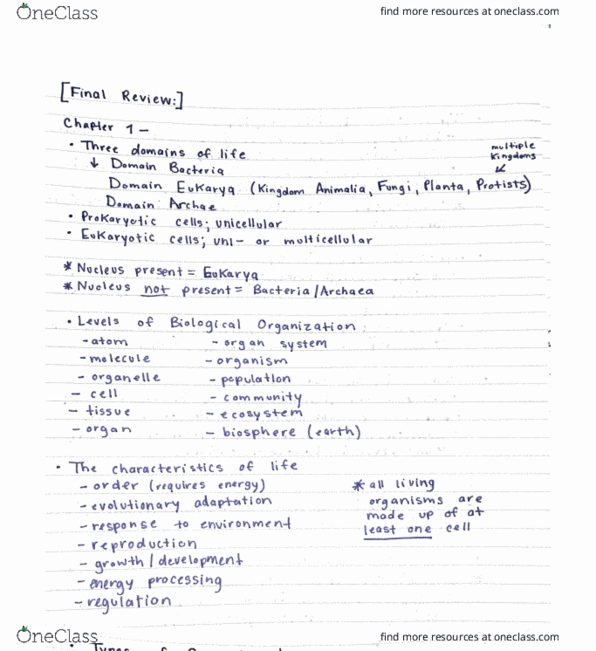 OneClass find more resources at oneclass.com
[Final Review:]
Chapter 1 -
• Three domains of life
multiple
kingdoms
↓ Domain Bacteria
Domain Eukarya (Kingdom Animalia, Fungi, Planta, Protists)
Domain Archae
• Prokaryotic cells; unicellular
• Eukaryotic cells; uni- or multicellular
* Nucleus present = Eukarya
* Nucleus not present = Bacteria/Archaea
• Levels of Biological Organization:
- atom - organ system
- molecule - organism
- organelle - population
- cell - community
- tissue - ecosystem
- organ - biosphere (earth)
• The characteristics of life
- order (requires energy)
- evolutionary adaptation
- response to environment
- reproduction
- growth/development
- energy processing
- regulation
* all living
organisms are
made up of at
least one cell
OneClass find more resources at oneclass.com
• Types of